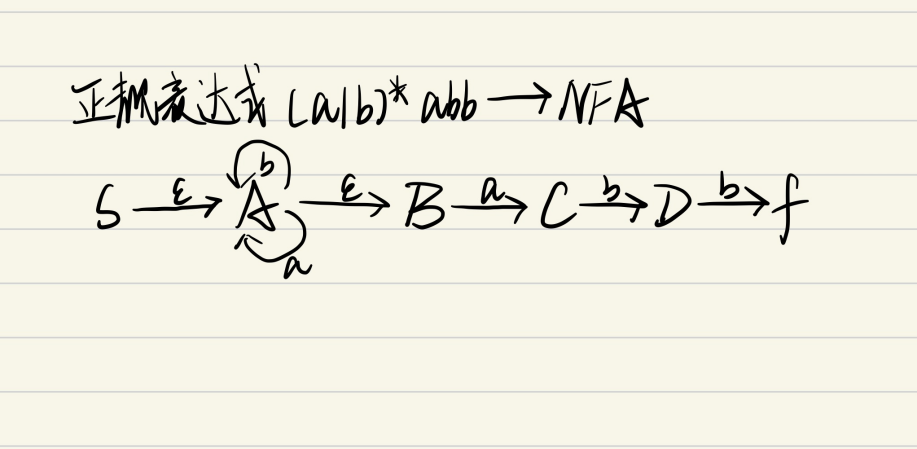 正规表达式 (a|b)* abb → NFA
b
S —ε→ A —ε→ B —a→ C —b→ D —b→ f
a